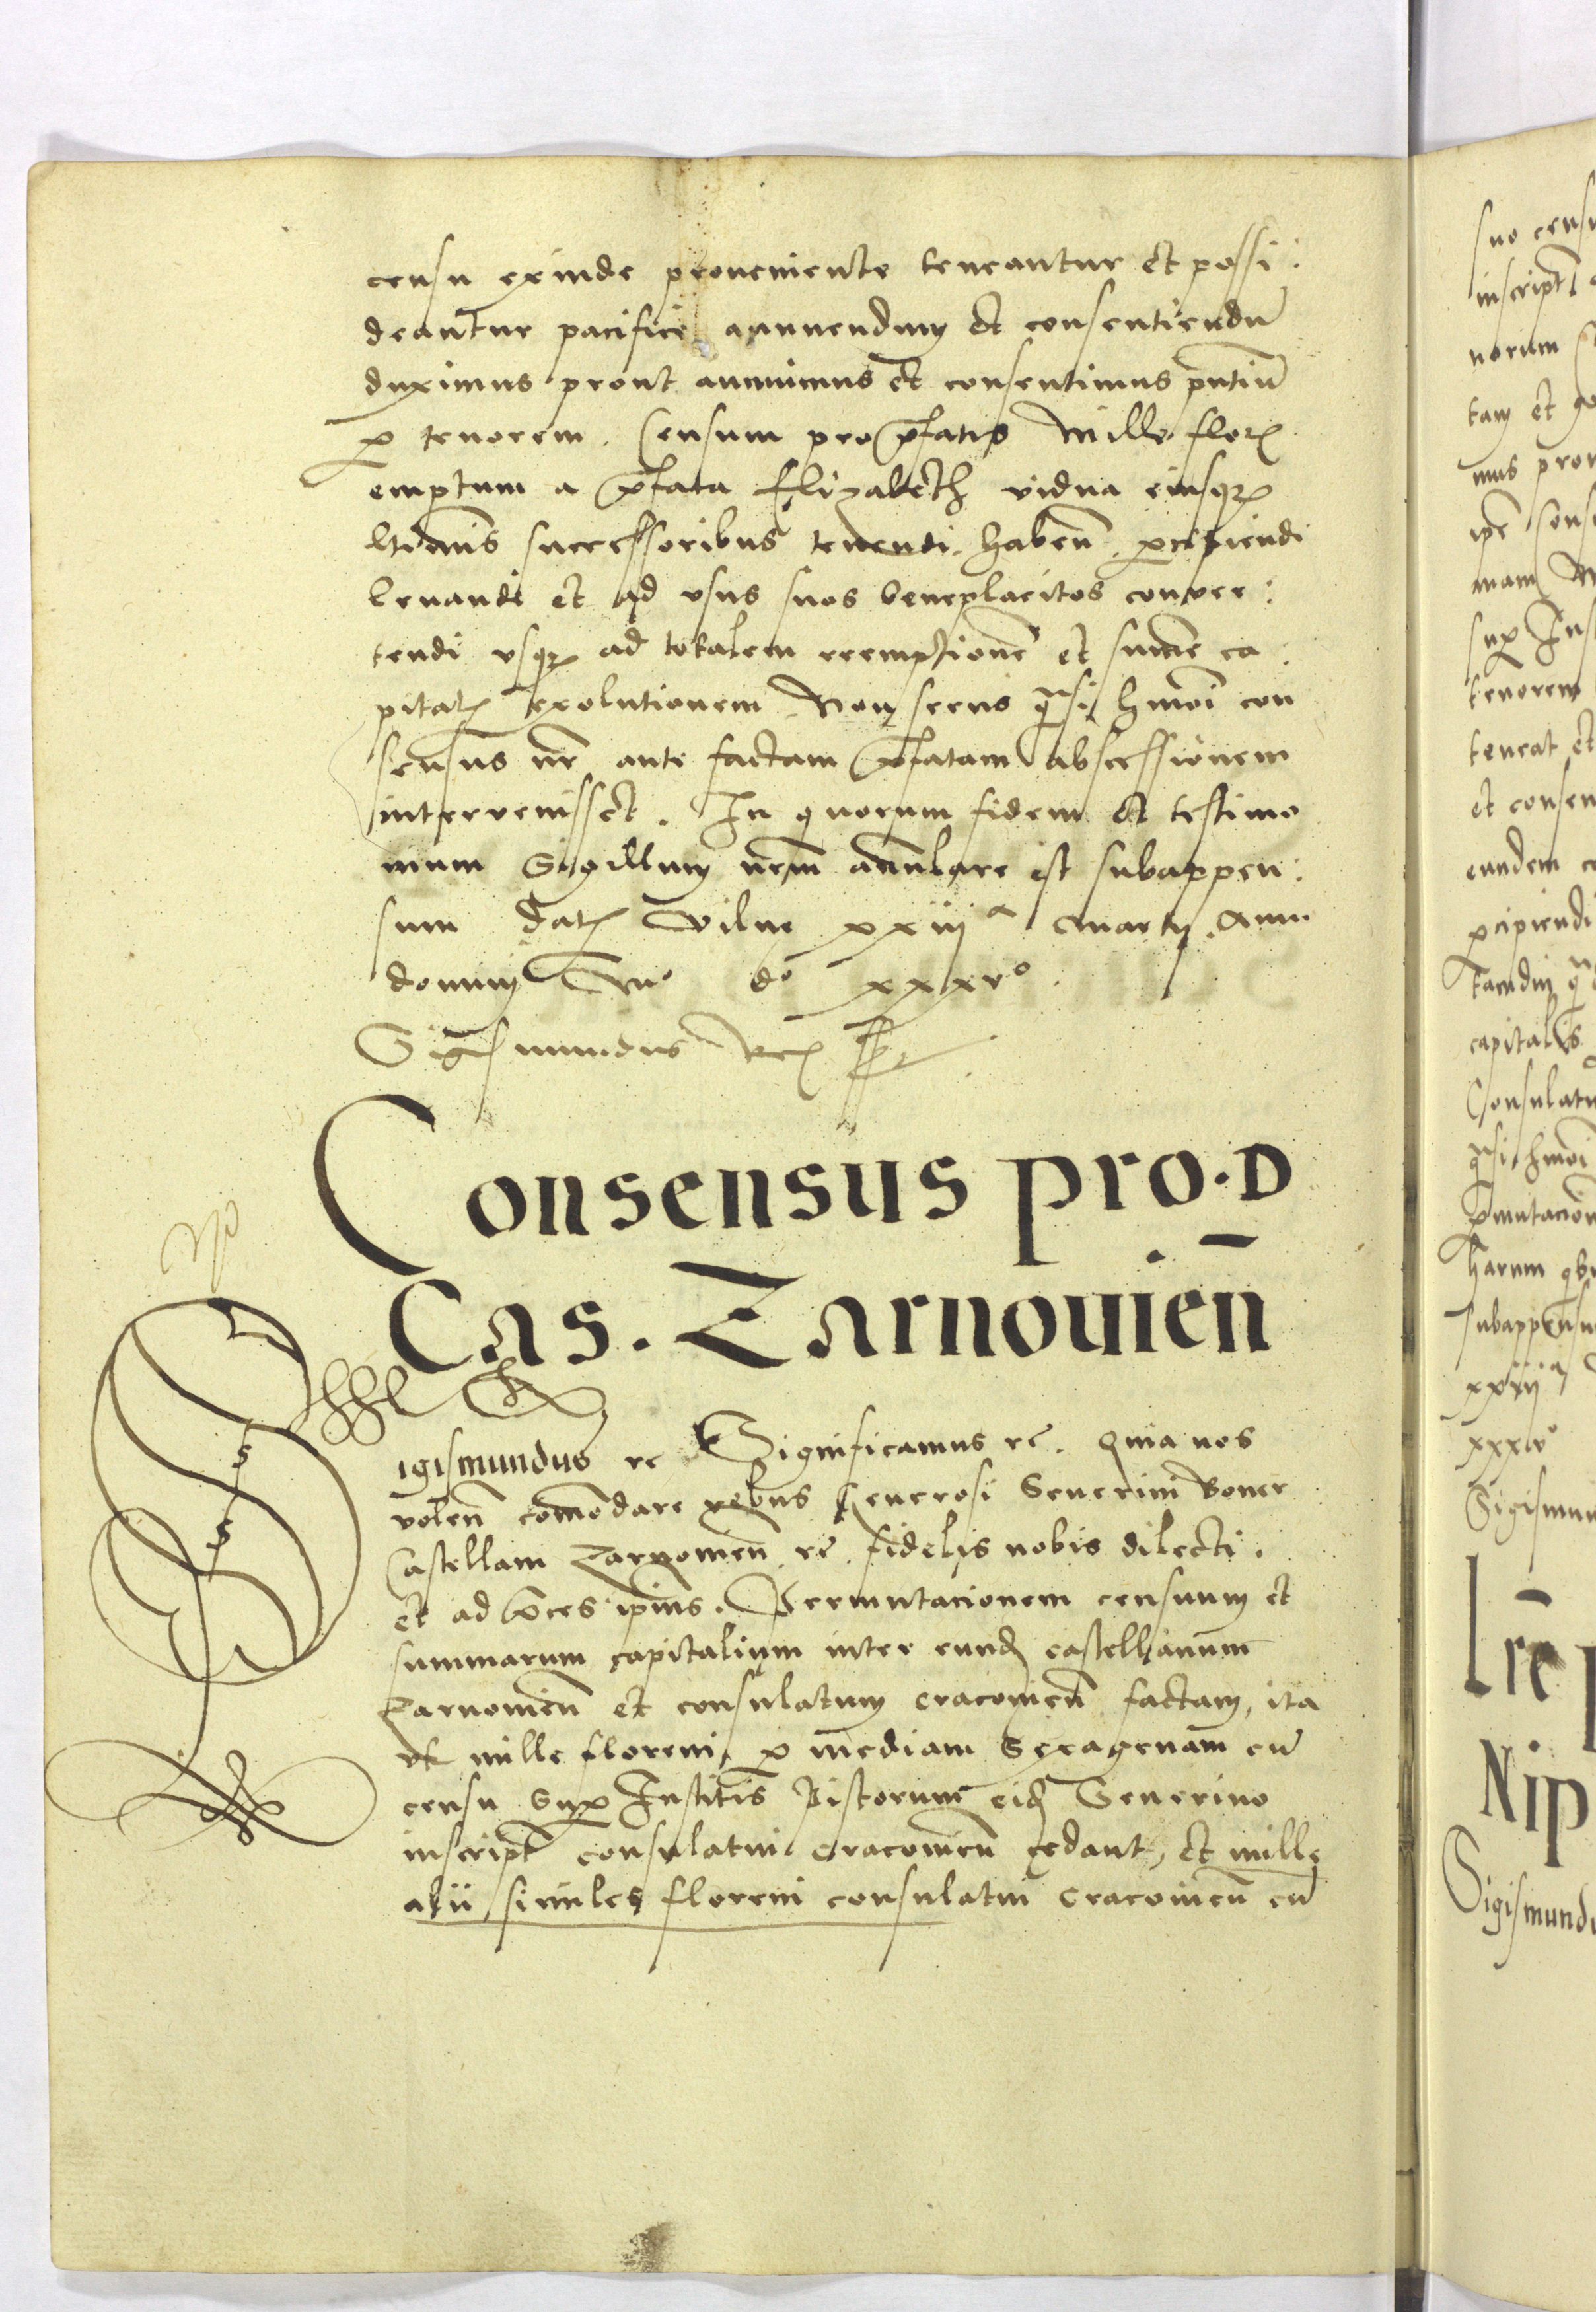 censu exinde proueniente teneantur et possi:
deantur pacifice annuendum et consentiendū
duximus prout annuimus et consentimus pntiū
p tenorem. Censum pro pfatis Mille flor
emptum a pfata Elizabeth vidua eiusqz
ltimis successoribus tenendi. habeñ. pcipiendi
leuandi et ad vsus suos beneplacitos conuer:
tendi vsqz ad totalem reemptionē et summe ca:
pital exolutionem Non secus qsi hmoi con
sensus nr̄ ante factam pfatam abscessionem
interuenisset. In quorum fidem et testimo
nium Sigillum nrm̄ annulare est subappen:
sum Dat Vilne xxiij a Martij. Anno
domini Mo do xxxvo.
Sigismundus Rex sst
Consensus pro. D
Cas. Zarnouień
Sigismundus rc Significamus rc̄. Quia nos
voleñ comōdare rebus Generosi Seuerini Boner
Castellani Zarnouień rc̄ fidelis nobis dilecti.
et ad pces ipius. Permutacionem censuum et
summarum capitalium inter eund castellanum
Zarnouień et consulatum cracouień factam, ita
vt mille floreni p mediam Sexagenam cū
censu Sup Institis Pistorum eid Seuerino
inscript consulatui cracouień cedant, et mille
alii similes floreni consulatui cracouień cū
suo censu
inscript
norum
tam et
mus prou
ipē cons
mam
sup Ins
tenorem
teneat et
et consen
eundem
pcipiendi
tamdiu
capitalis
Consulatu
qsi hmoi
pmutacion
harum
subappensu
xxiii a
xxxvo
Sigismun
Lrē
Nip
Sigismundu